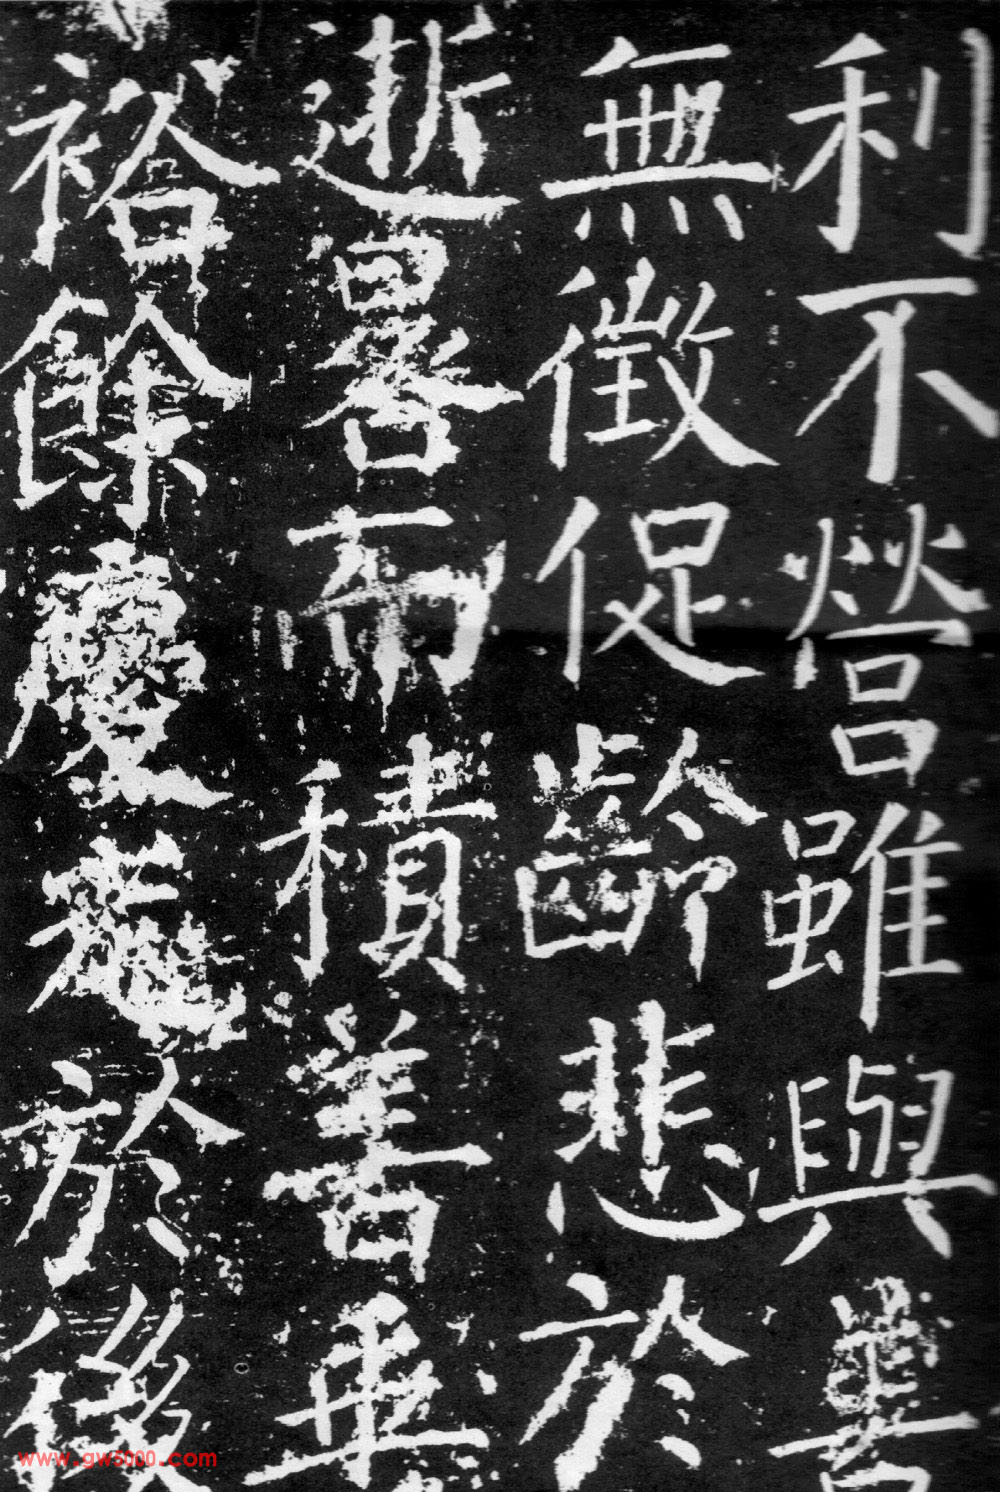 利不營雖與善
無徵促齡悲於
逝晷而積善垂
裕餘慶於後
www.gw5000.com